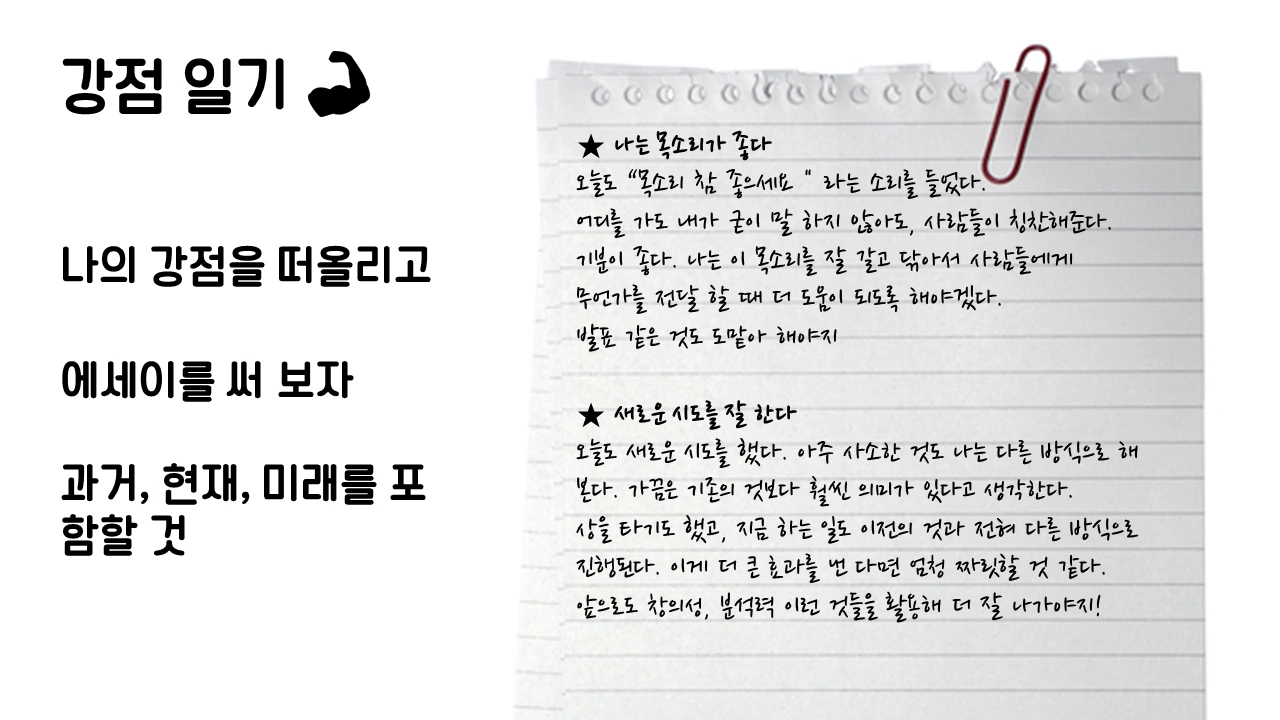 강점 일기
나의 강점을 떠올리고
에세이를 써 보자
과거, 현재, 미래를 포
함할 것
★ 나는 목소리가 좋다
오늘도 "목소리 참 좋으세요 " 라는 소리를 들었다.
어디를 가도 내가 굳이 말 하지 않아도, 사람들이 칭찬해준다.
기분이 좋다. 나는 이 목소리를 잘 갈고 닦아서 사람들에게
무언가를 전달 할 때 더 도움이 되도록 해야겠다.
발표 같은 것도 도맡아 해야지
★ 새로운 시도를 잘 한다
오늘도 새로운 시도를 했다. 아주 사소한 것도 나는 다른 방식으로 해
본다. 가끔은 기존의 것보다 훨씬 의미가 있다고 생각한다.
상을 타기도 했고, 지금 하는 일도 이전의 것과 전혀 다른 방식으로
진행된다. 이게 더 큰 효과를 낸 다면 엄청 짜릿할 것 같다.
앞으로도 창의성, 분석력 이런 것들을 활용해 더 잘 나가야지!